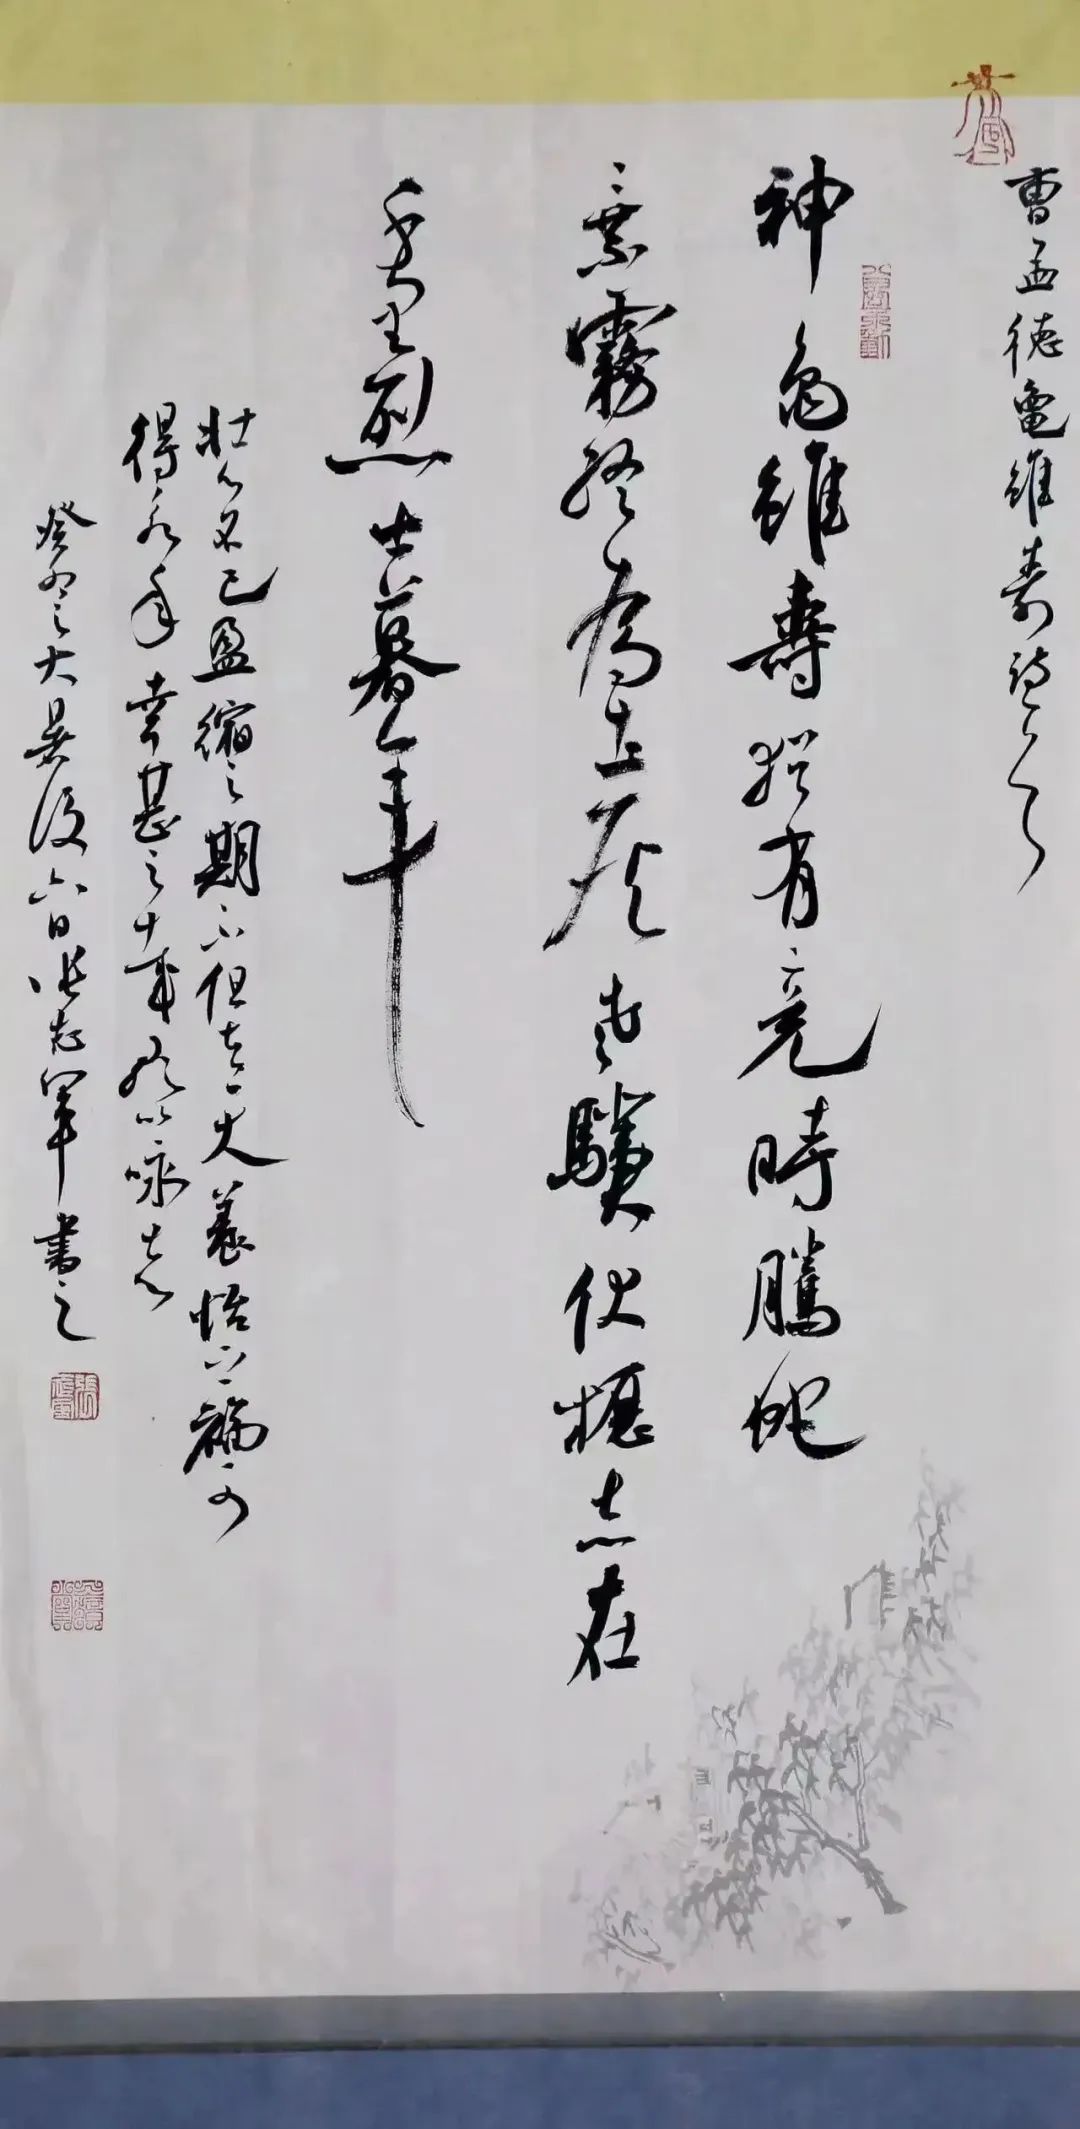 曹孟德龜雖壽詩
神龜雖壽猶有竟時騰蛇
乘霧終為土灰老驥伏櫪志在
千里烈士暮年
壯心不已盈縮之期不但在天養怡之福可
得永年幸甚至哉歌以咏志
癸卯大暑後六日張志軍書之